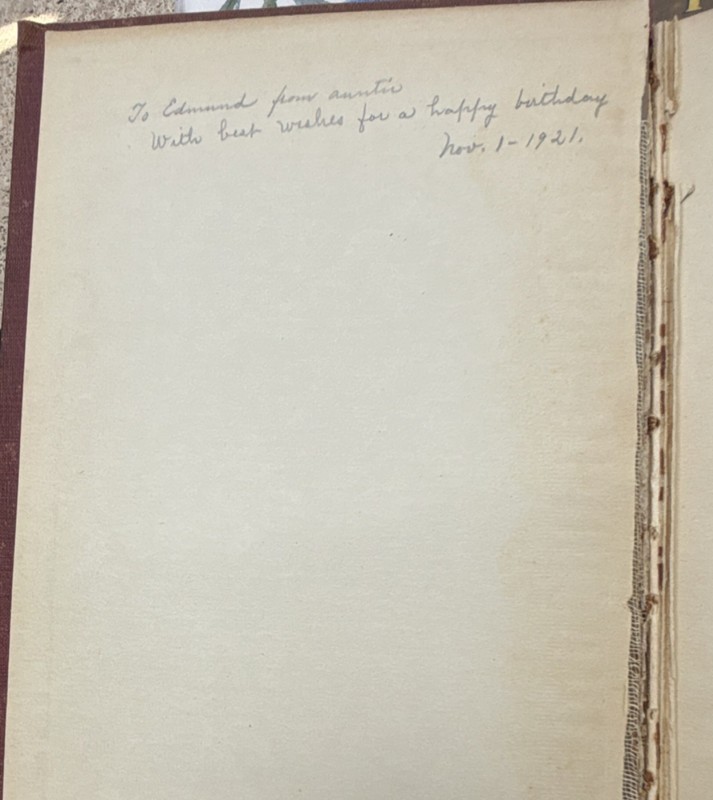 To Edmund from auntie
With best wishes for a happy birthday
Nov. 1 - 1921.